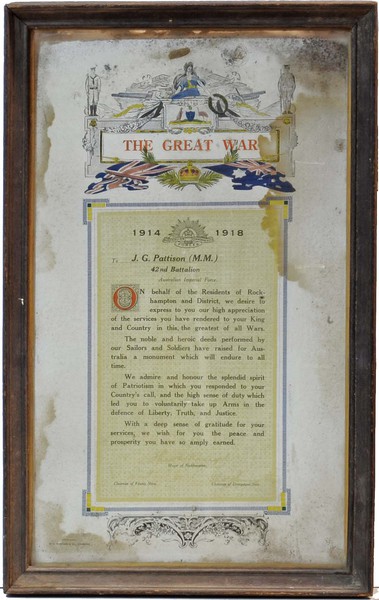 THE GREAT WAR
1914 1918
To J. G. Pattison (M.M.)
42nd Battalion
Australian Imperial Force.
ON behalf of the Residents of Rock-
hampton and District, we desire to
express to you our high appreciation
of the services you have rendered to your King
and Country in this, the greatest of all Wars.
The noble and heroic deeds performed by
our Sailors and Soldiers have raised for Aus-
tralia a monument which will endure to all
time.
We admire and honour the splendid spirit
of Patriotism in which you responded to your
Country's call, and the high sense of duty which
led you to voluntarily take up Arms in the
defence of Liberty, Truth, and Justice.
With a deep sense of gratitude for your
services, we wish for you the peace and
prosperity you have so amply earned.
Mayor of Rockhampton.